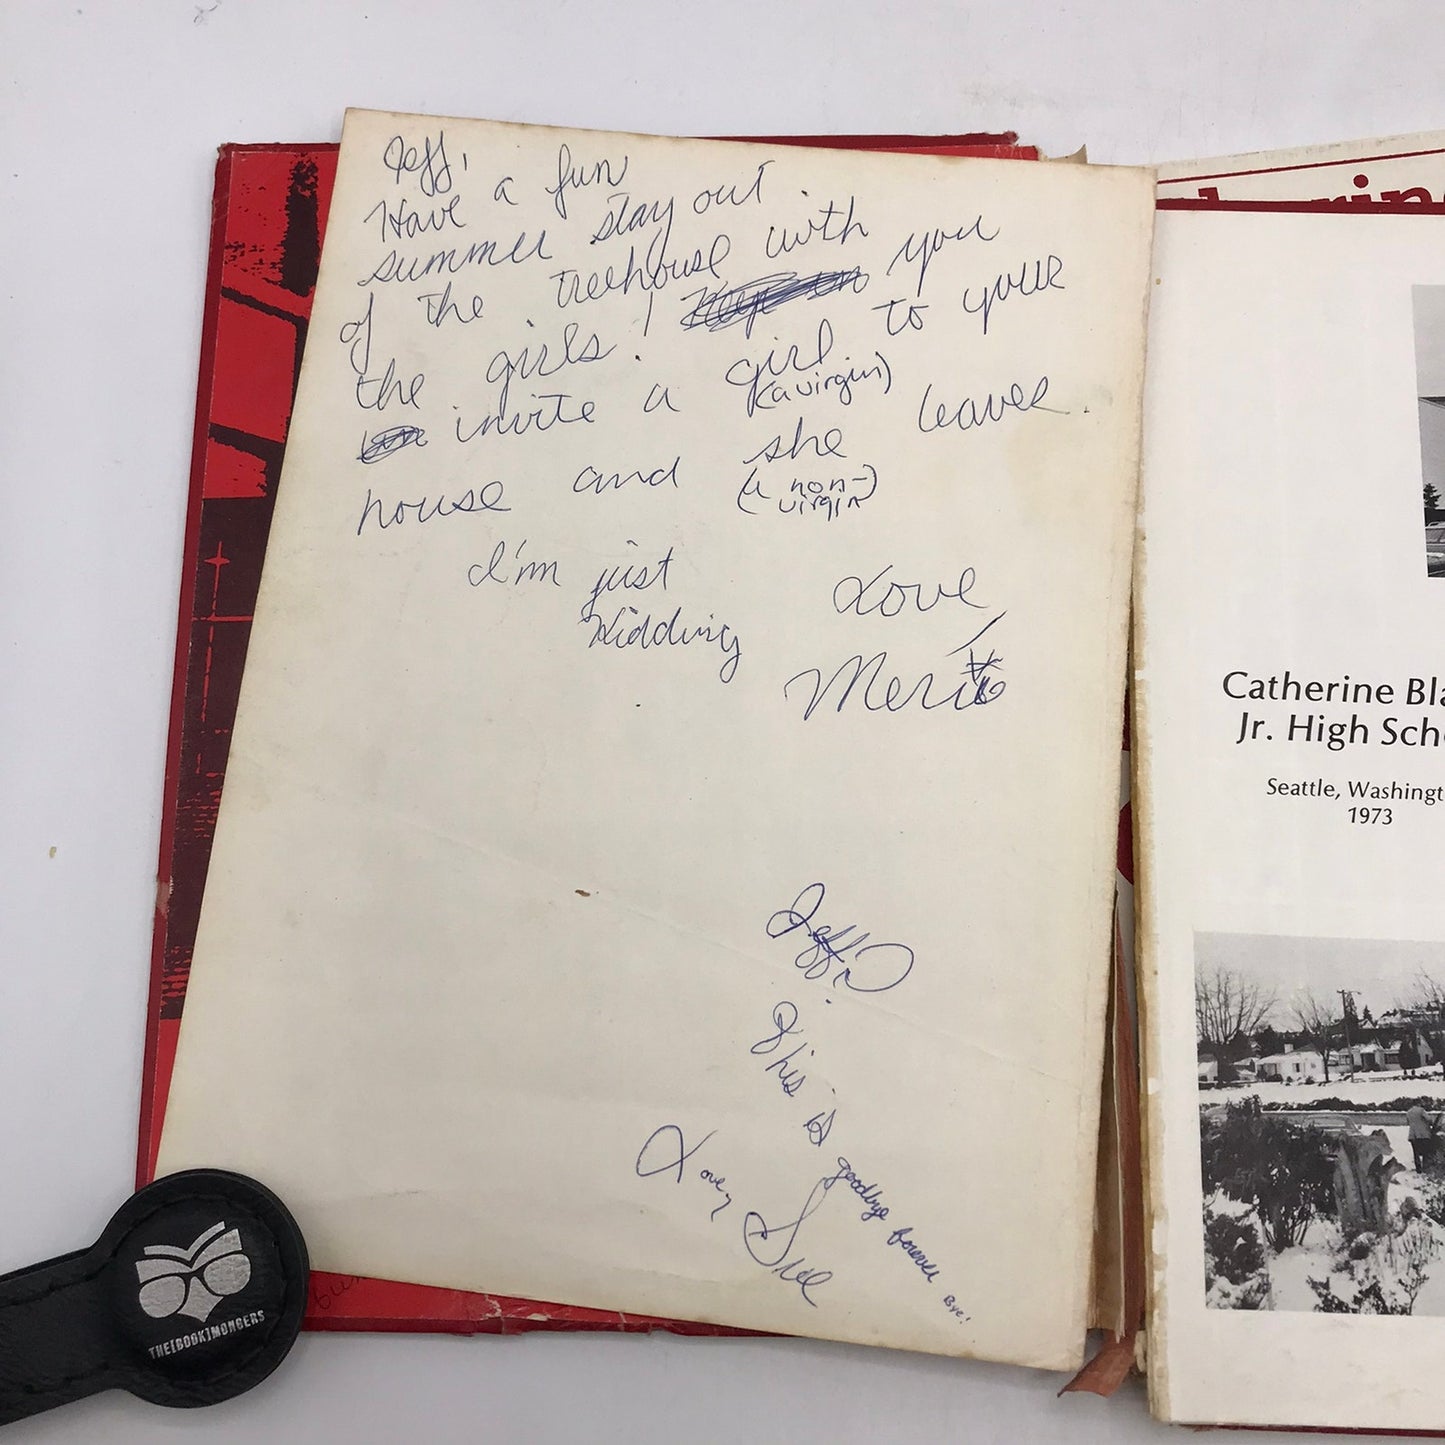 Jeff,
Have a fun
summer stay out
of the treehouse with
the girls! you
invite a girl to your
(a virgin)
house and she leaves.
(a non-
virgin)
I'm just
Kidding
Love,
Jeff,
This is goodbye forever Bye!
Love,
Sue
Catherine Bla
Jr. High Sch
Seattle, Washingt
1973
THE[BOOK]MONGERS